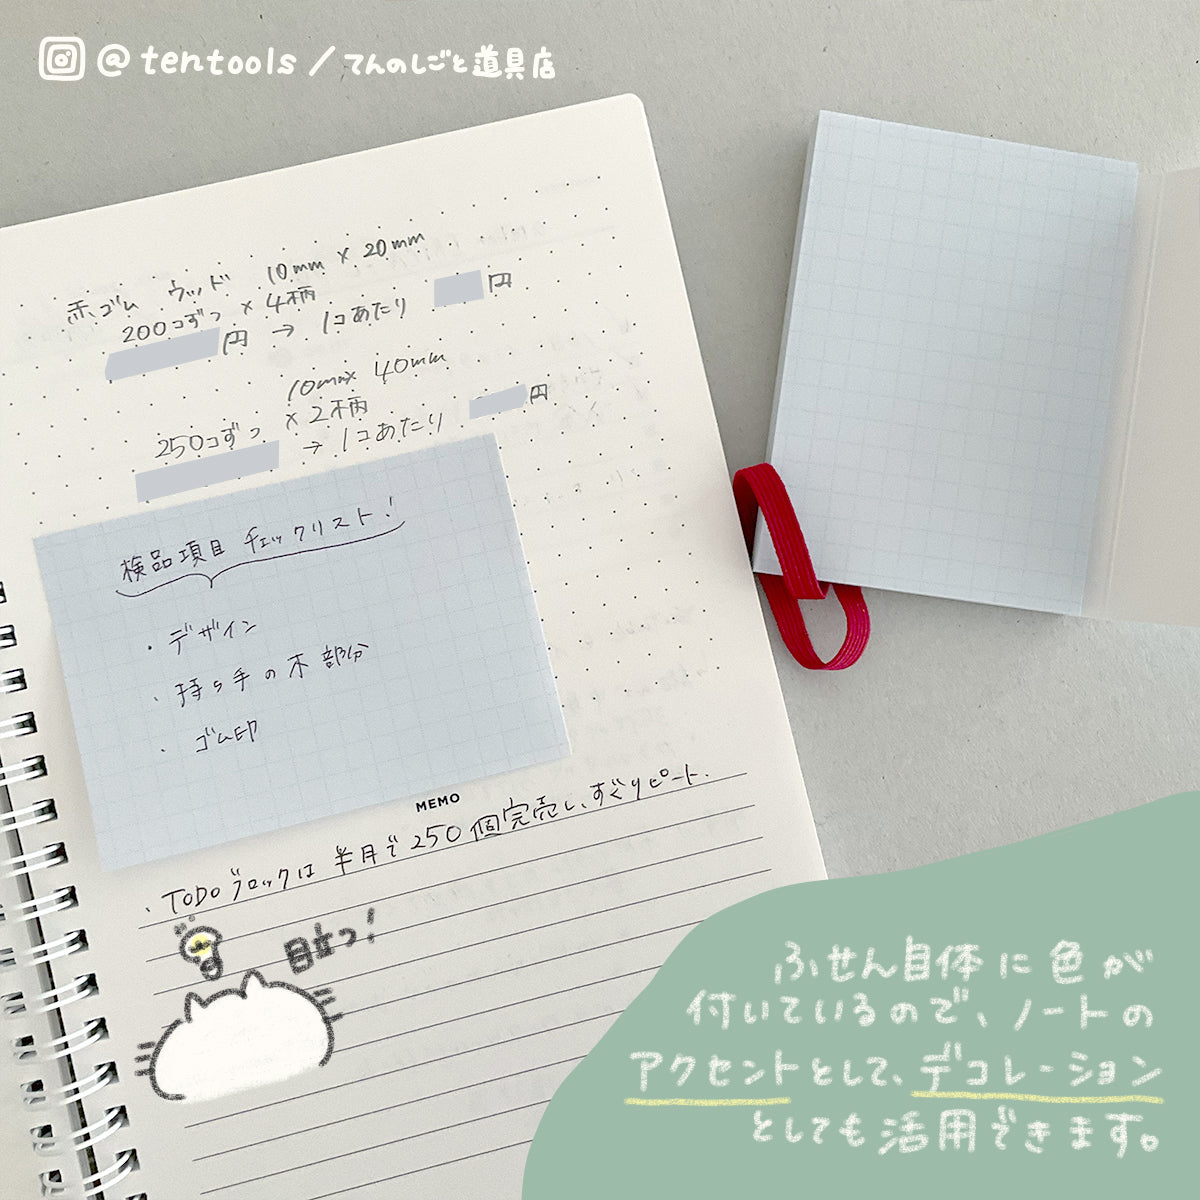 @tentools/てんのしごと道具店
赤ゴム ウッド 10mm x 20mm
200コずつ x 4柄
円 → 1コあたり 円
10mmx 40mm
250コずつ x 2柄
→ 1コあたり 円
検品項目 チェックリスト!
・デザイン
・持ち手の木部分
・ゴム印
MEMO
・TODOブロックは半月で250個完売し、すぐリピート.
目立つ!
ふせん自体に色が
付いているので、ノートの
アクセントとして、デコレーション
としても活用できます。